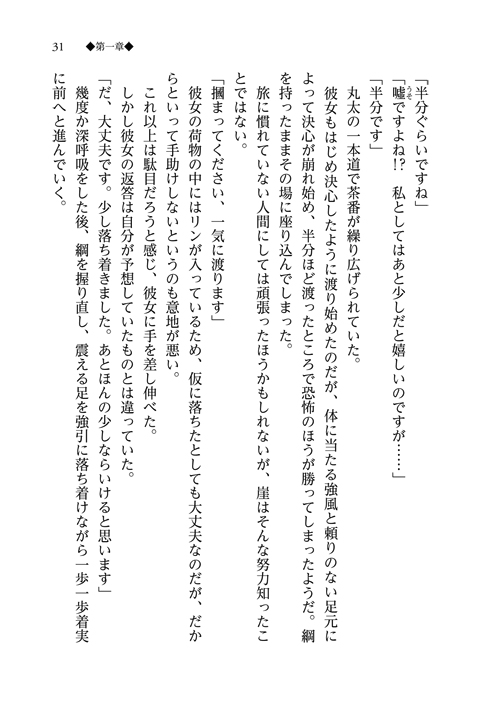 31　◆第一章◆
「半分ぐらいですね」
「嘘ですよね!?　私としてはあと少しだと嬉しいのですが……」
「半分です」
　丸太の一本道で茶番が繰り広げられていた。
　彼女もはじめ決心したように渡り始めたのだが、体に当たる強風と頼りのない足元に
よって決心が崩れ始め、半分ほど渡ったところで恐怖のほうが勝ってしまったようだ。綱
を持ったままその場に座り込んでしまった。
　旅に慣れていない人間にしては頑張ったほうかもしれないが、崖はそんな努力知ったこ
とではない。
「摑まってください、一気に渡ります」
　彼女の荷物の中にはリンが入っているため、仮に落ちたとしても大丈夫なのだが、だか
らといって手助けしないというのも意地が悪い。
　これ以上は駄目だろうと感じ、彼女に手を差し伸べた。
　しかし彼女の返答は自分が予想していたものとは違っていた。
「だ、大丈夫です。少し落ち着きました。あとほんの少しならいけると思います」
　幾度か深呼吸をした後、綱を握り直し、震える足を強引に落ち着けながら一歩一歩着実
に前へと進んでいく。